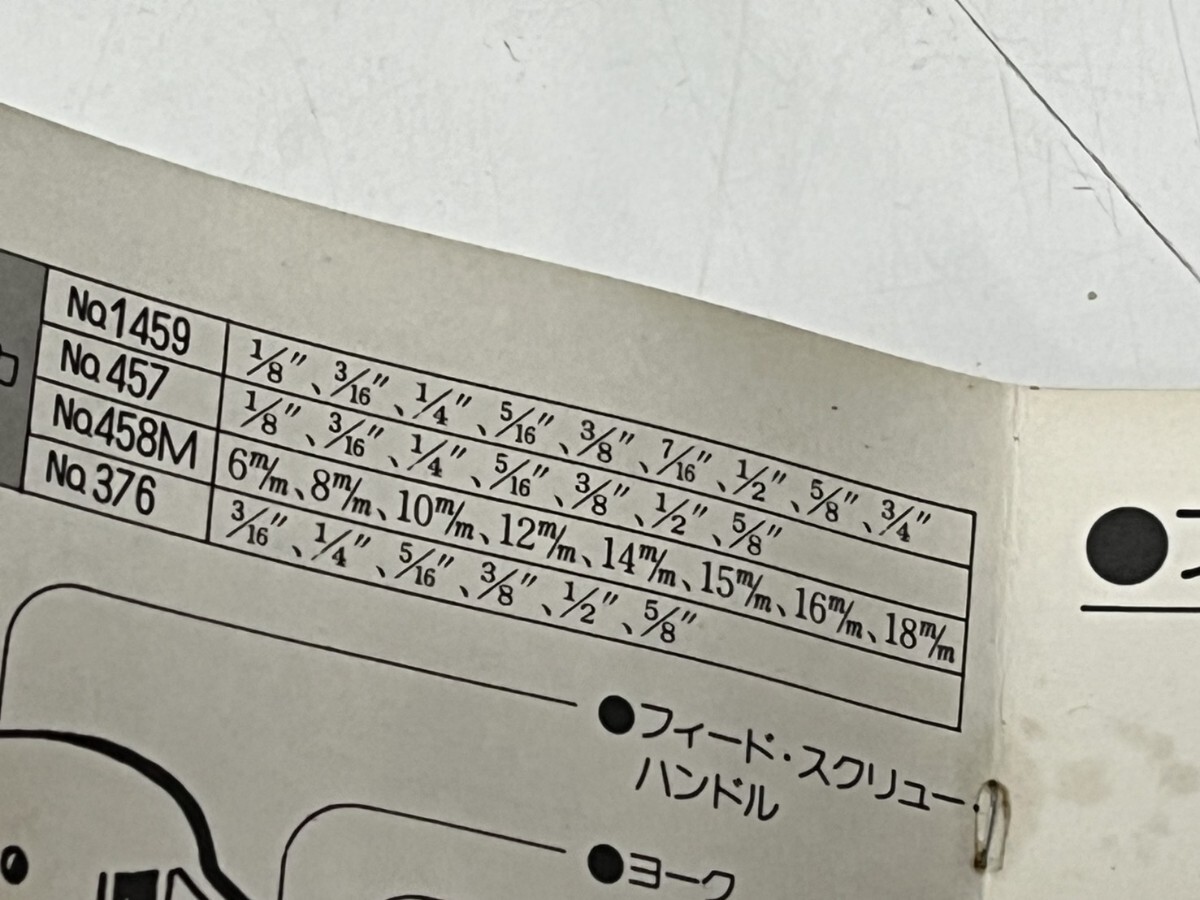 No.1459 1/8″、3/16″、1/4″、5/16″、3/8″、7/16″、1/2″、5/8″、3/4″
No.457 1/8″、3/16″、1/4″、5/16″、3/8″、1/2″、5/8″
No.458M 6m/m、8m/m、10m/m、12m/m、14m/m、15m/m、16m/m、18m/m
No.376 3/16″、1/4″、5/16″、3/8″、1/2″、5/8″
●フィード・スクリュー・
ハンドル
●ヨーク